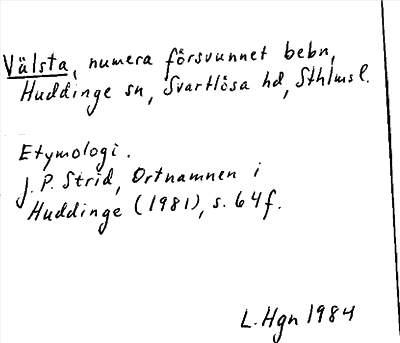 Välsta, numera försvunnet bebn,
Huddinge sn, Svartlösa hd, Sthlms l.
Etymologi.
J. P. Strid, Ortnamnen i
Huddinge (1981), s. 64f.
L. Hgn 1984